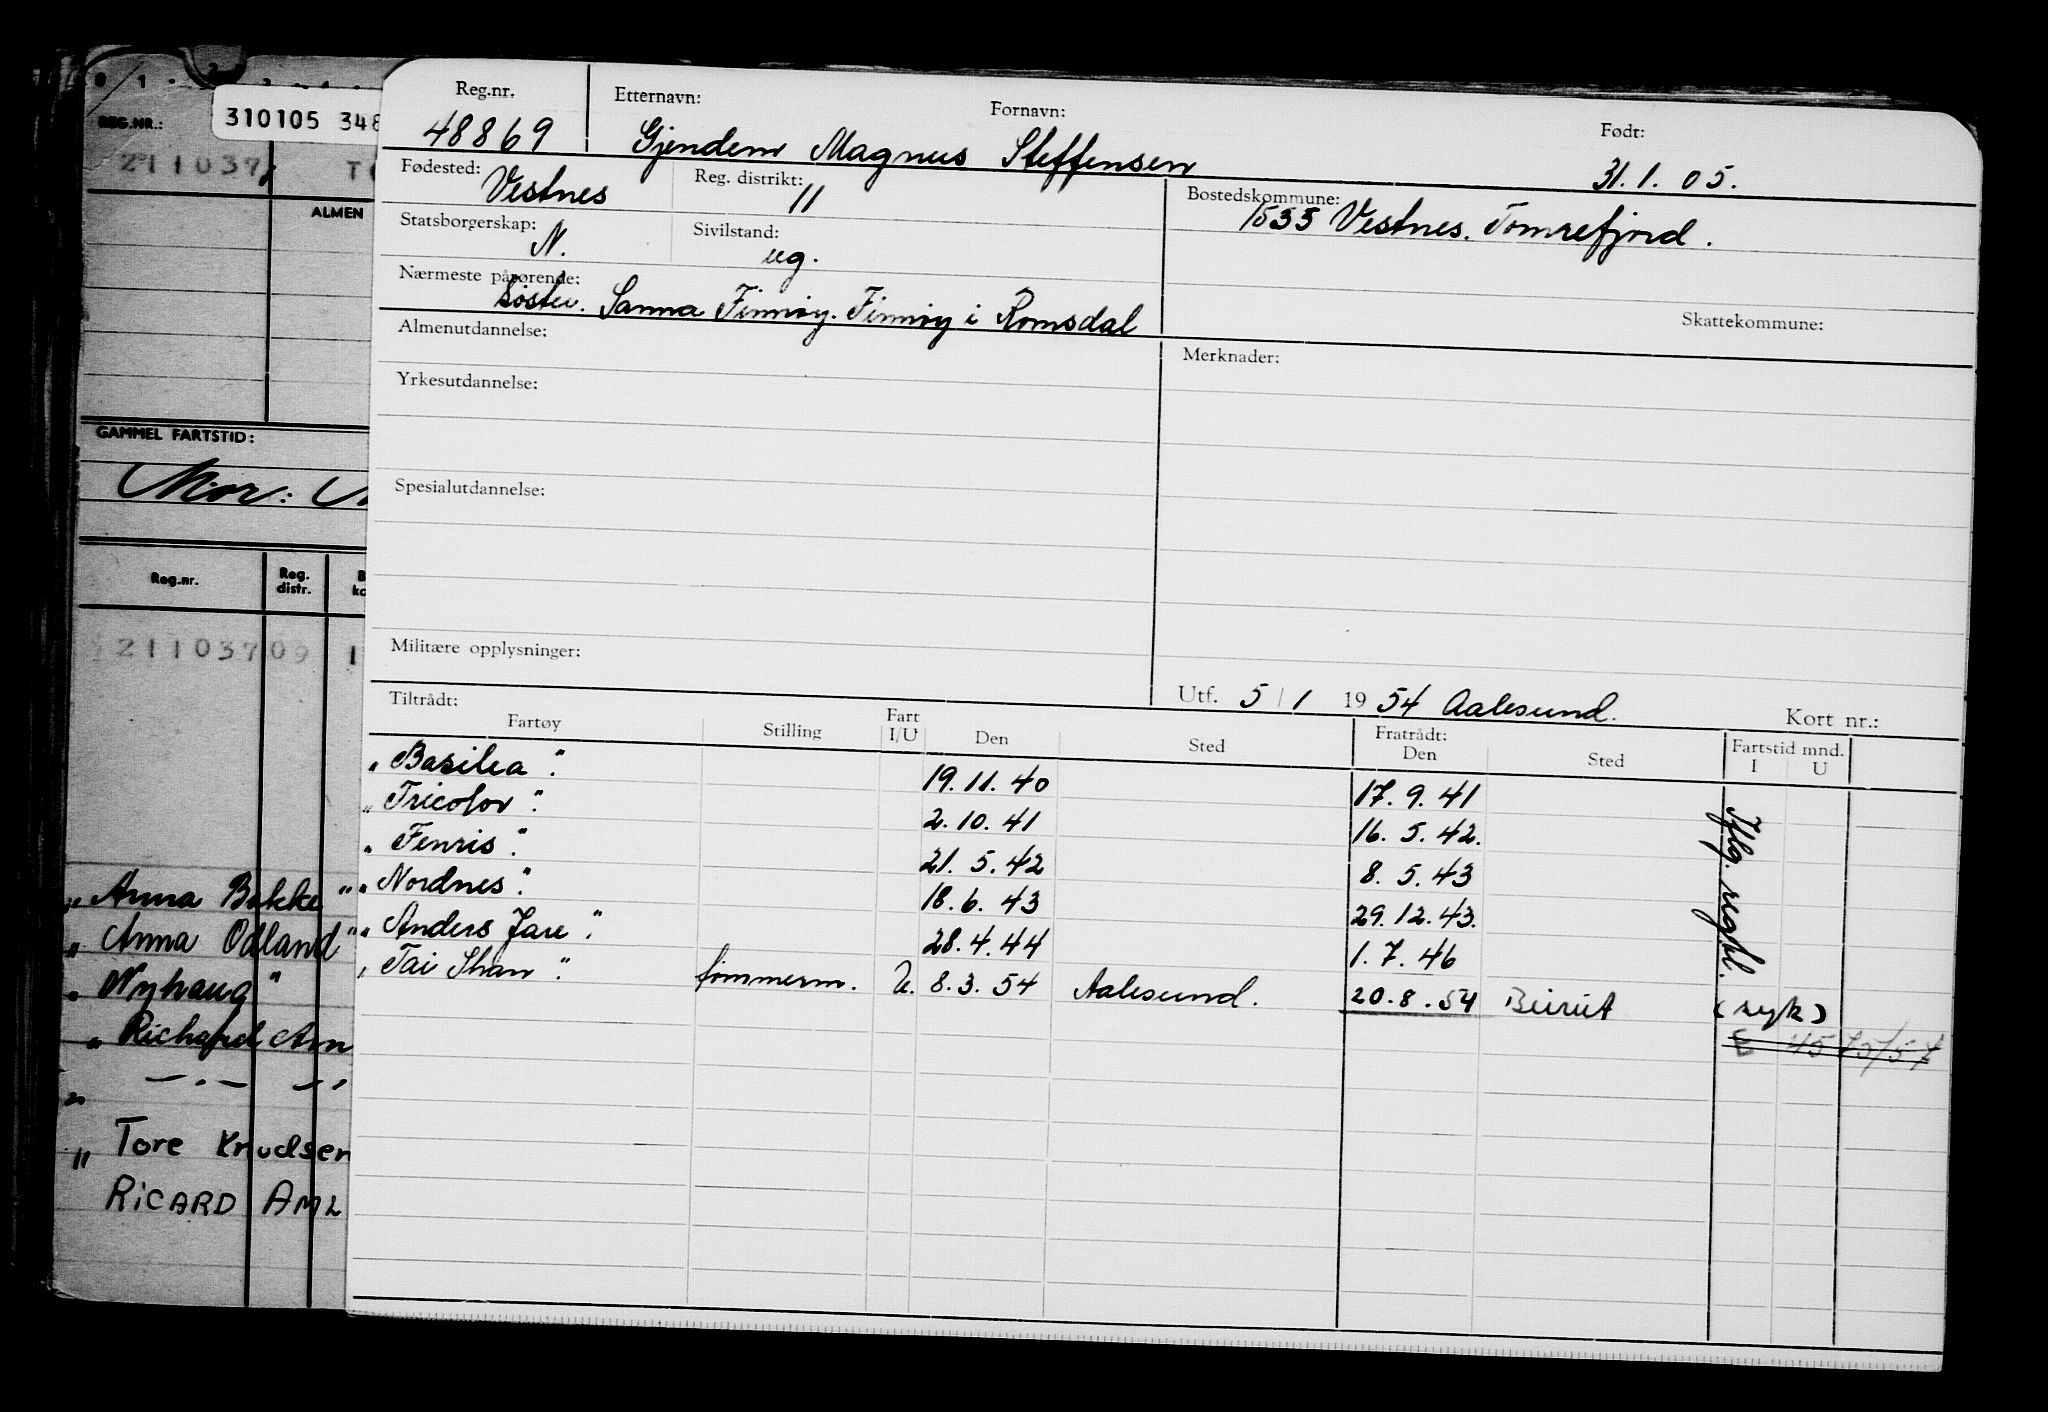 310105 348
REG.NR.:
211037
ALMEN
GAMMEL FARTSTID:
Mor:
Reg.nr. Reg. distr.
21103709
„ Anna Bakke "
„ Anna Odland "
„ Nyhaug "
„ Richard Am
„ — . — "
„ Tore Knudsen
RICARD AML
Reg.nr. Etternavn: Fornavn: Født:
48869 Gjendem Magnus Steffensen 31.1.05.
Fødested: Vestnes Reg. distrikt: 11 Bostedskommune: 1535 Vestnes. Tomrefjord.
Statsborgerskap: N. Sivilstand: ug.
Nærmeste pårørende: Søster. Sanna Finnøy. Finnøy i Romsdal
Skattekommune:
Almenutdannelse: Merknader:
Yrkesutdannelse:
Spesialutdannelse:
Militære opplysninger:
Utf. 5/1 1954 Aalesund. Kort nr.:
Tiltrådt: Fratrådt: Fartstid mnd.
Fartøy Stilling Fart I/U Den Sted Den Sted I U
„ Basilea ". 19.11.40 17.9.41
„ Tricolor ". 2.10.41 16.5.42.
„ Fenris ". 21.5.42 8.5.43
„ Nordnes ". 18.6.43 29.12.43.
„ Anders Jare ". 28.4.44 1.7.46
Iflg. regbl.
„ Tai Shan ". tømmerm. U. 8.3.54 Aalesund. 20.8.54 Beirut (syk)